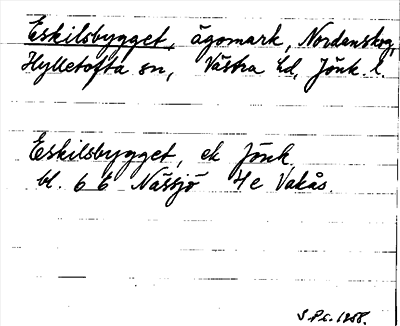 Eskilsbygget, ägomark, Nordanskog,
Hylletofta sn, Västra hd, Jönk. l.
Eskilsbygget, ek Jönk.
bl. 6 E Nässjö 4 e Vakås.
1958.